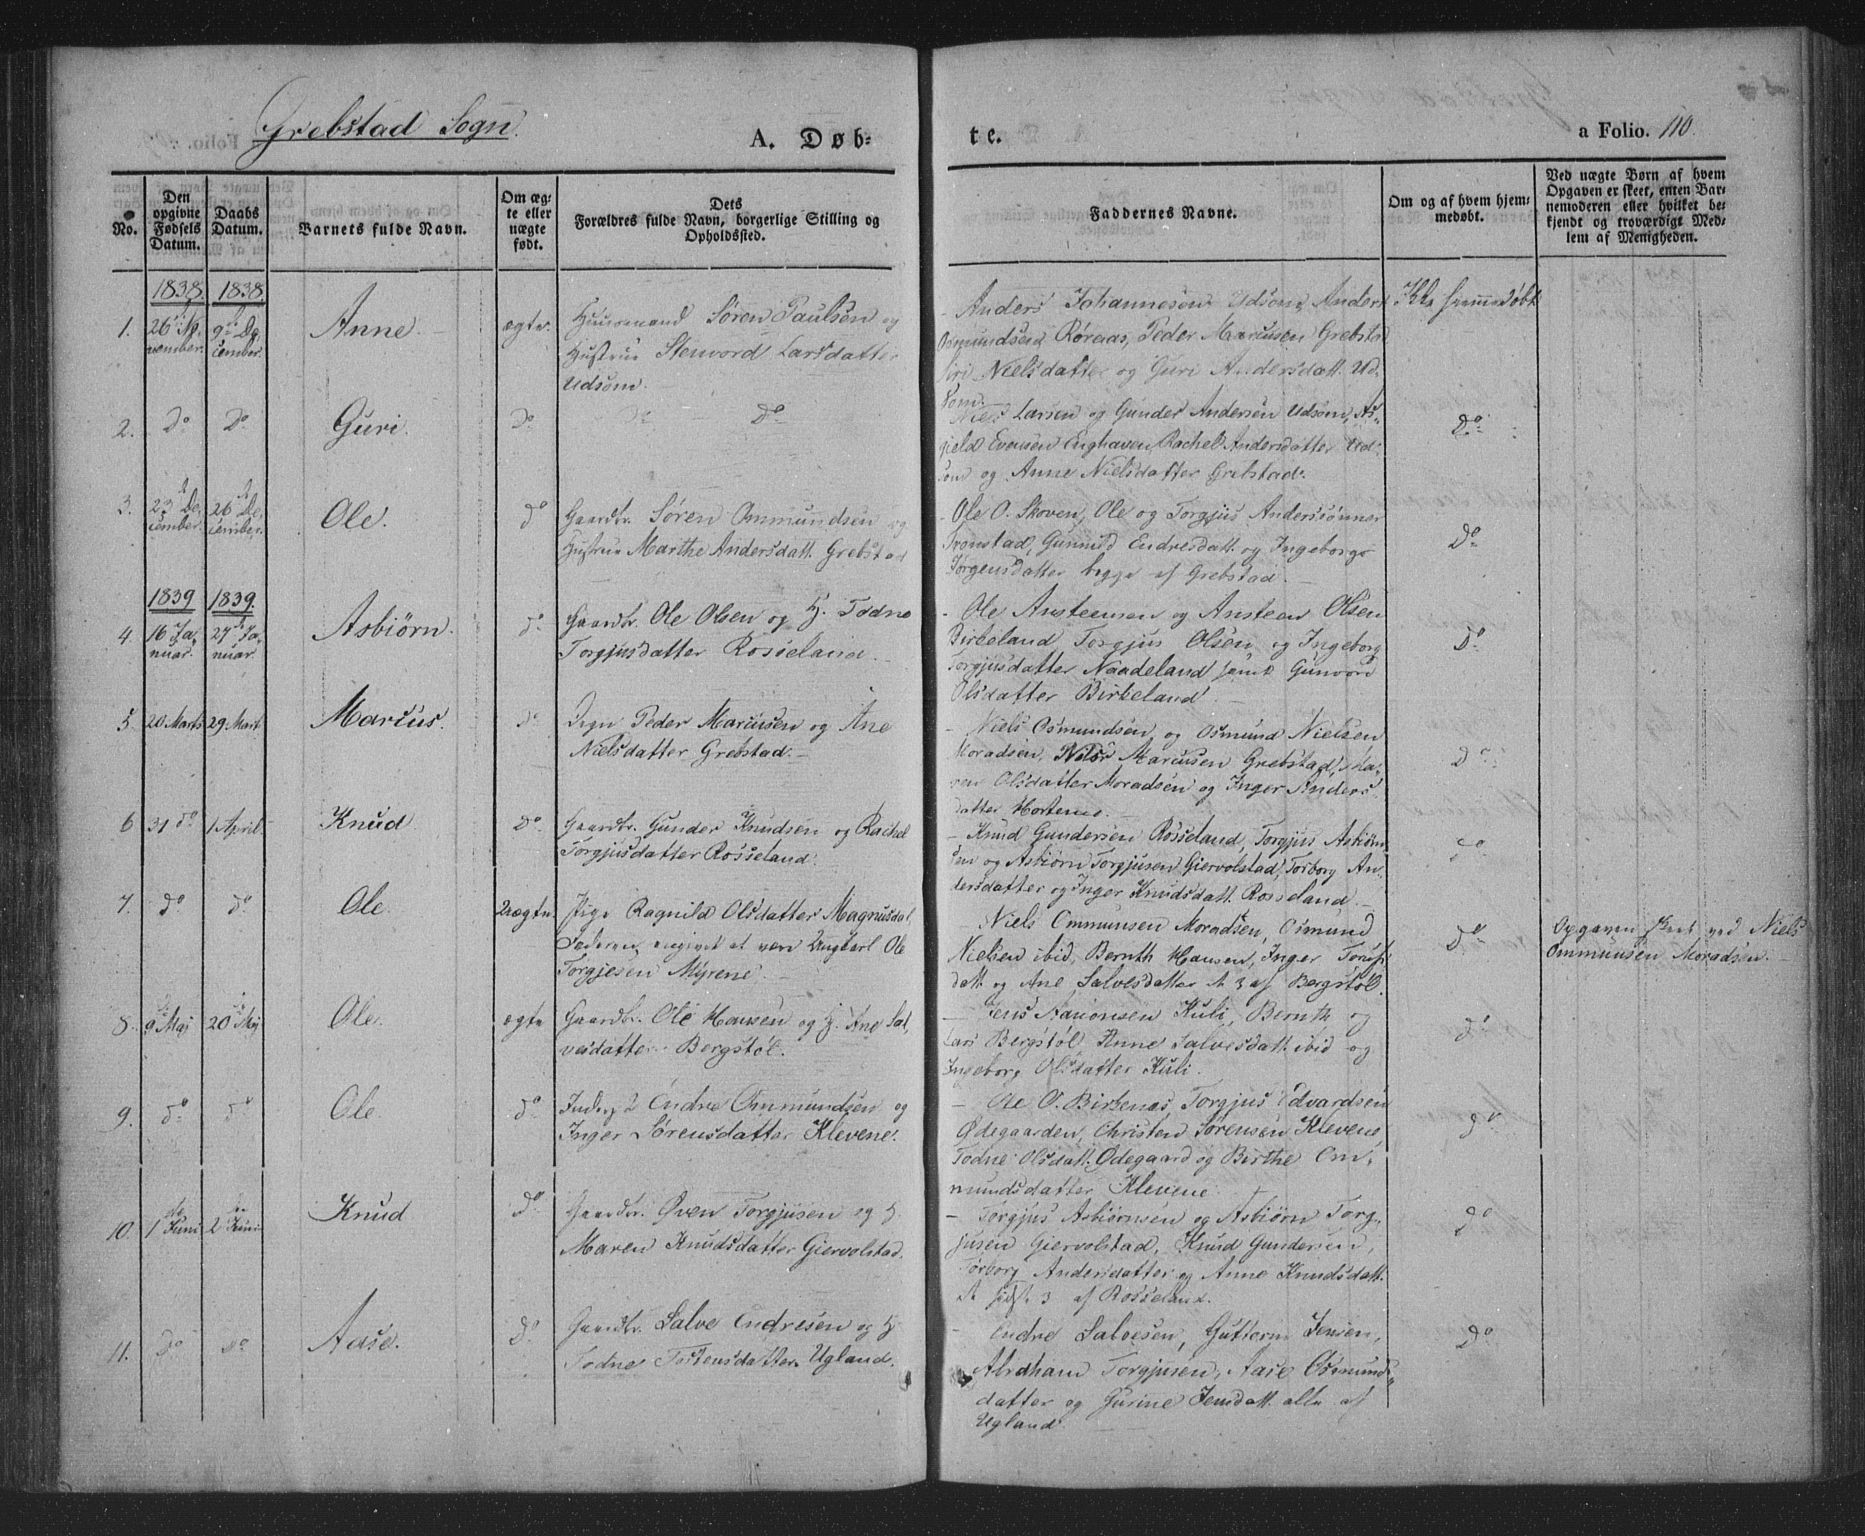 Grebstad Sogn.
A. Døb-
te.
a Folio. 110.
No.
Den opgivne Fødsels Datum.
Daabs Datum.
Barnets fulde Navn.
Om ægte eller nægte født.
Dets Forældres fulde Navn, borgerlige Stilling og Opholdssted.
Faddernes Navne.
Om og af hvem hjemmedøbt.
Ved nægte Børn af hvem Opgaven er skeet, enten Barnemoderen eller hvilket bekjendt og troværdigt Medlem af Menigheden.
1838. 1838.
1. 26 November. 9 December. Anne ægte
Huusmand Søren Paulsen og
Hustrue Stenvord Larsdatter
Udsom.
Anders Johannesen Udsom, Anders
Osmundsen Røraas, Peder Marcusen Grebsta
Siri Nielsdatter og Guri Andersdatt. Ud-
som.
Ikke hjemmedøbt
2. Do Do Guri. Do Do Do
Niels Larsen og Gunder Andersen Udsom, As-
gield Evensen Enghaven, Rachel Andersdatter Ud-
som og Anne Nielsdatter Grebstad.
Do
3. 23 December. 26 December. Ole. Do
Gaardbr. Søren Ommundsen og
Hustrue Marthe Andersdatt. Grebstad
- Ole O. Skoven, Ole og Torgjus Anderssønner
Tronstad, Gunnild Endresdatt. og Ingeborg
Jørgensdatter begge af Grebstad.
Do
1839 1839.
4. 16 Januar. 27 Januar. Asbiörn. Do
Gaardbr. Ole Olsen og H. Todne
Torgjusdatter Rosseland.
- Ole Ansteensen og Ansteen Olsen
Birkeland, Torgjus Olsen og Ingeborg
Torgjusdatter Naadeland samt Gunvor
Olsdatter Birkeland
Do
5. 20 Marts 29 Mart. Marcus. Do
Peder Marcusen og Ane
Nielsdatter Grebstad.
- Niels Osmundsen, og Osmund Nielsen
Moradsen, Marcusen Grebstad, Ma-
ren Olsdatter Moradsen og Inger Anders-
datter Hortemo.
Do
6 31 do 1 April Knud Do
Gaardbr. Gunder Knudsen og Rachel
Torgjusdatter Rosseland.
- Knud Gundersen Rosseland, Torgjus Asbiörn-
sen og Asbiörn Torgjusen Giervolstad, Torborg An-
dersdatter og Inger Knudsdatt. Rosseland.
Do
7. do do Ole. Uægte
Pige Ragnild Olsdatter Magnusdal
Faderen angivet at være Ungkarl Ole
Torgjesen Myrene
Niels Ommunsen Moradsen, Osmund
Nielsen ibid, Bernth Hansen, Inger
datt. og Ane Salvesdatter d. 3 af Bergstöl.
Do
Opgaven skeet ved Niels
Ommunsen Moradsen.
8. 9 Maj 20 Maj Ole. ægte
Gaardbr. Ole Hansen og H. Ane Sal-
vesdatter Bergstöl.
- Jens Aanonsen Kuli, Bernth og
Lars Bergstöl Anne Salvesdatt. ibid og
Ingeborg Olsdatter Kuli.
Do
9. do do Ole. Do
Endre Ommundsen og
Inger Sørensdatter Klevene.
- Ole O. Birkenes, Torgjus Edvardsen
Ødegaarden, Christen Sørensen Klevene,
Todne Olsdatt. Ødegaard og Birthe Om-
mundsdatter Klevene
Do
10. 1 Juni 2 Juni Knud Do
Gaardbr. Øven Torgjusen og H.
Maren Knudsdatter Giervolstad.
- Torgjus Asbiörnsen og Asbiörn Torg-
jusen Giervolstad, Knud Gundersen,
Torborg Andersdatter og Anne Knudsdatt.
d. sidst. 3 af Rosseland.
Do
11. Do Do Aase. Do
Gaardbr. Salve Endresen og H.
Todne Torkensdatter Ugland.
- Endre Salvesen, Guttorm Jensen,
Abraham Torgjusen, Aase Osmunds-
datter og Gurine Jensdatt. alle af
Ugland
Do